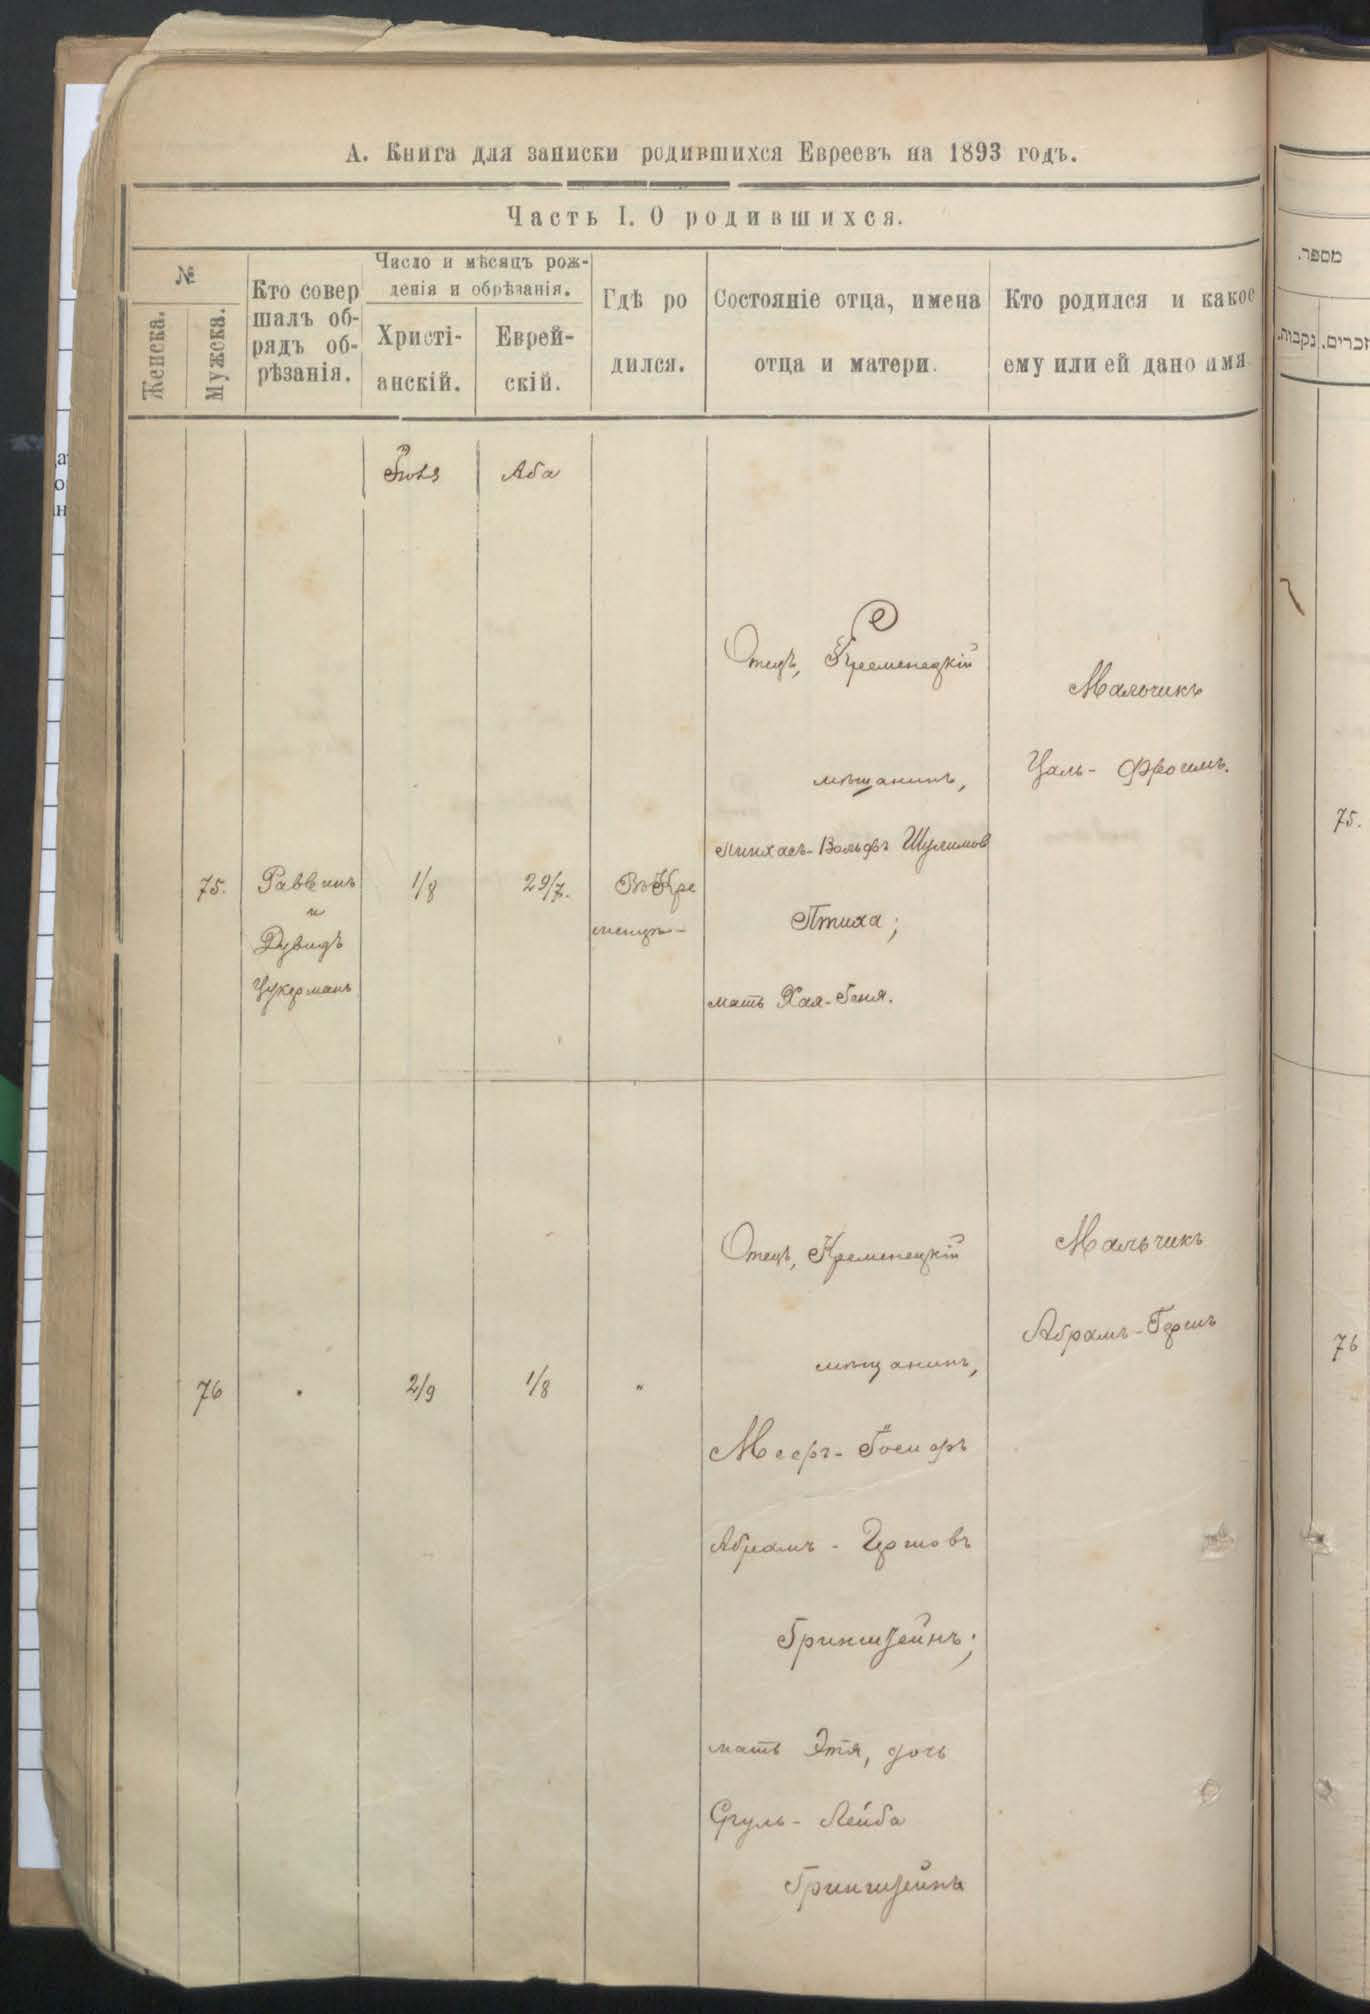 А. Книга для записки родившихся Евреевъ на 1893 годъ.
Часть I. О родившихся.
№
Женска.
Мужска.
Кто совер
шалъ об-
рядъ об-
рѣзанія.
Число и мѣсяцъ рож-
денія и обрѣзанія.
Христі-
анскій.
Еврей-
скій.
Гдѣ ро
дился.
Состояніе отца, имена
отца и матери.
Кто родился и какое
ему или ей дано имя
מספר.
נקבות.
זכרים.
Іюля
Аба
75.
Раввинъ
и
Дувидъ
Цукерманъ
1/8
29/7.
Въ Кре
менцѣ-
Отецъ, Кременецкій
мѣщанинъ,
Пинхасъ-Вольфъ Шулимов
Птиха;
мать Хая-Геня.
Мальчикъ
Цаль- Фроимъ.
75.
76
2/9
1/8
"
Отецъ, Кременецкій
мѣщанинъ,
Мееръ-
Абрамъ-
Гринштейнъ;
мать Этя, дочь
Сруль- Лейба
Гринштейнъ
Мальчикъ
Абрамъ-Герш
76